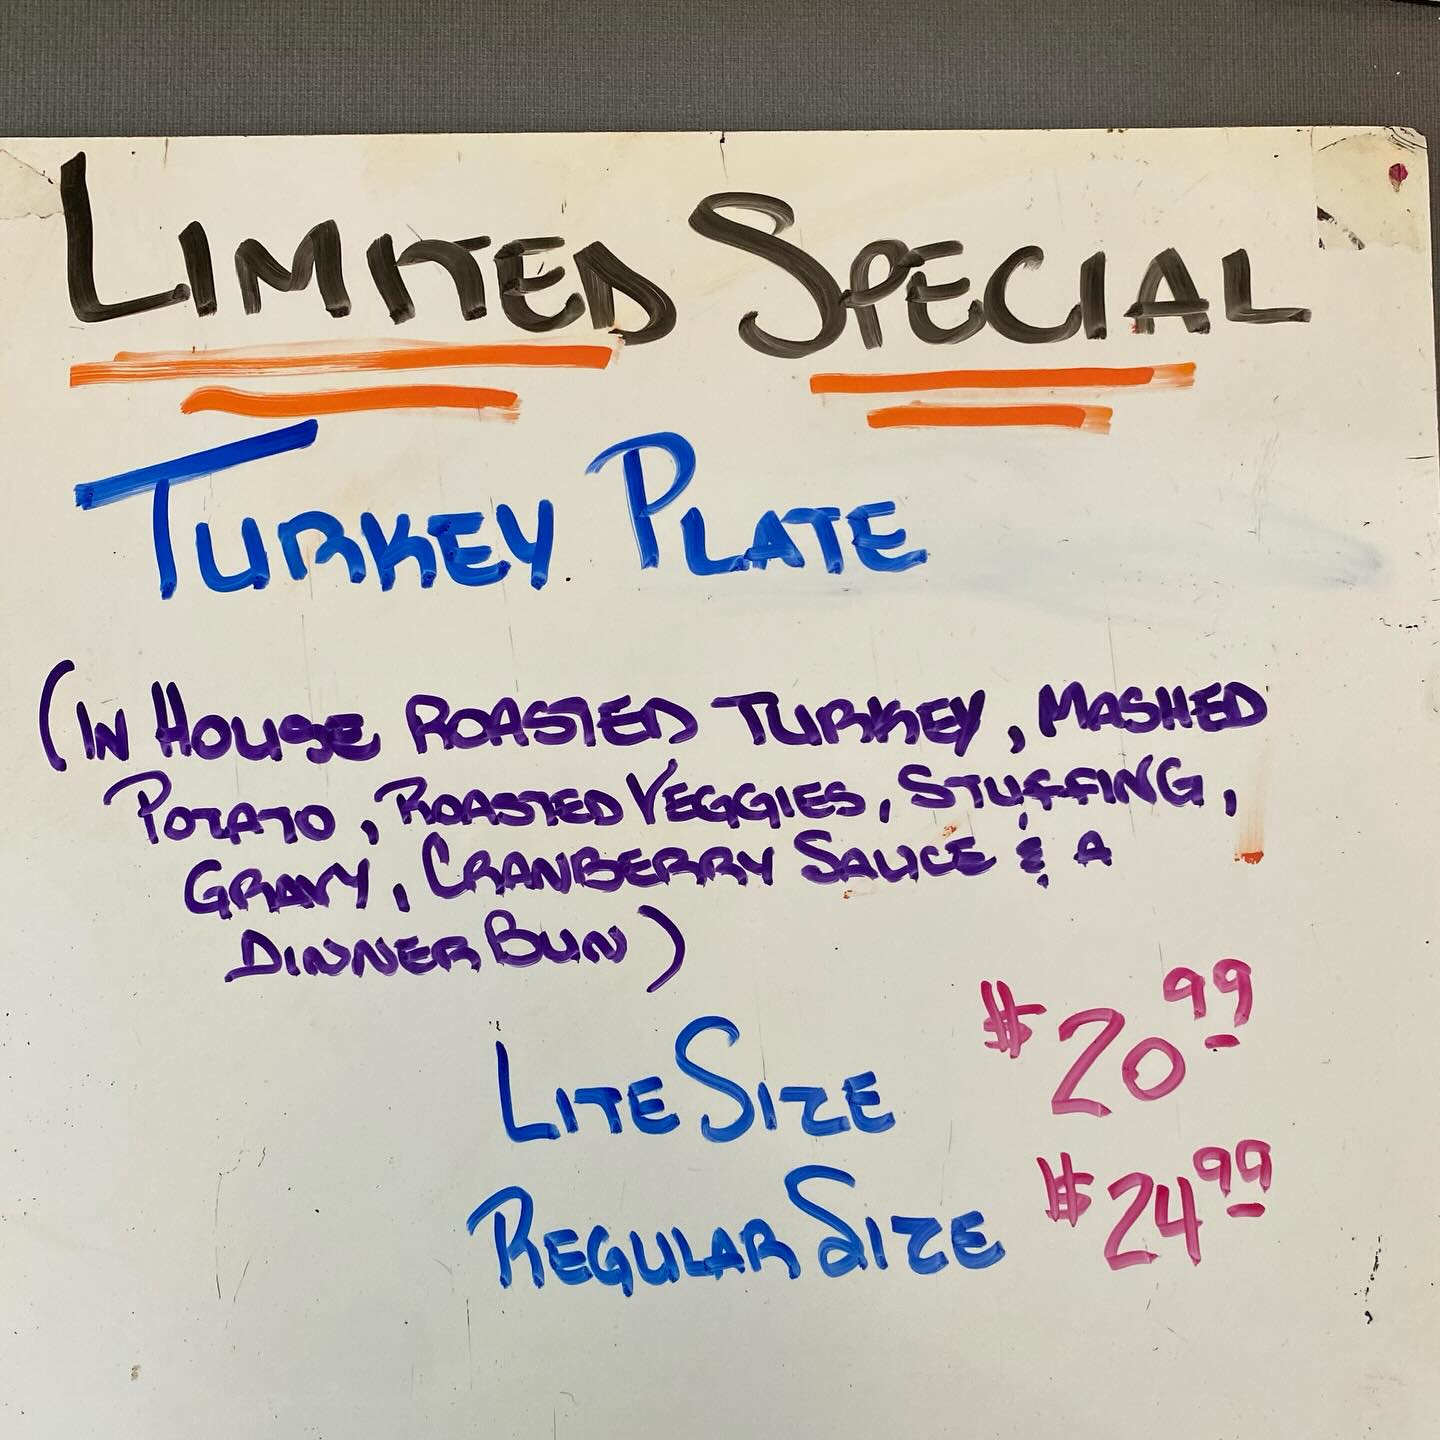 LIMITED SPECIAL
TURKEY PLATE
(IN HOUSE ROASTED TURKEY, MASHED
POTATO, ROASTED VEGGIES, STUFFING,
GRAVY, CRANBERRY SAUCE & A
DINNER BUN)
LITE SIZE $20.99
REGULAR SIZE $24.99